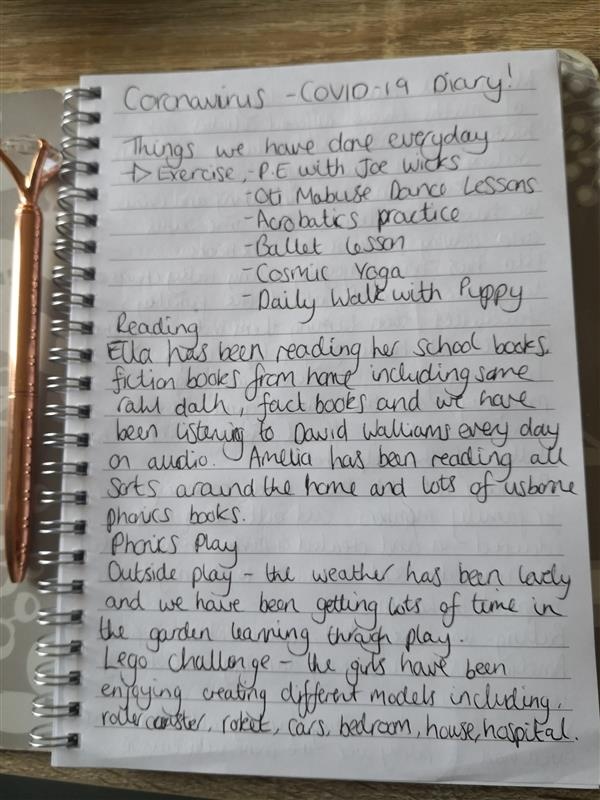 Coronavirus - COVID-19 Diary!
Things we have done everyday
→ Exercise, - P.E with Joe Wicks
- Oti Mabuse Dance Lessons
- Acrobatics practice
- Ballet lesson
- Cosmic Yoga
- Daily Walk with Puppy
Reading
Ella has been reading her school books,
fiction books from home including some
rahl dalh, fact books and we have
been listening to David Walliams every day
on audio. Amelia has been reading all
sorts around the home and lots of usborne
phonics books.
Phonics Play
Outside play - the weather has been lovely
and we have been getting lots of time in
the garden learning through play.
Lego challenge - the girls have been
enjoying creating different models including,
rollercoaster, robot, cars, bedroom, house, hospital.